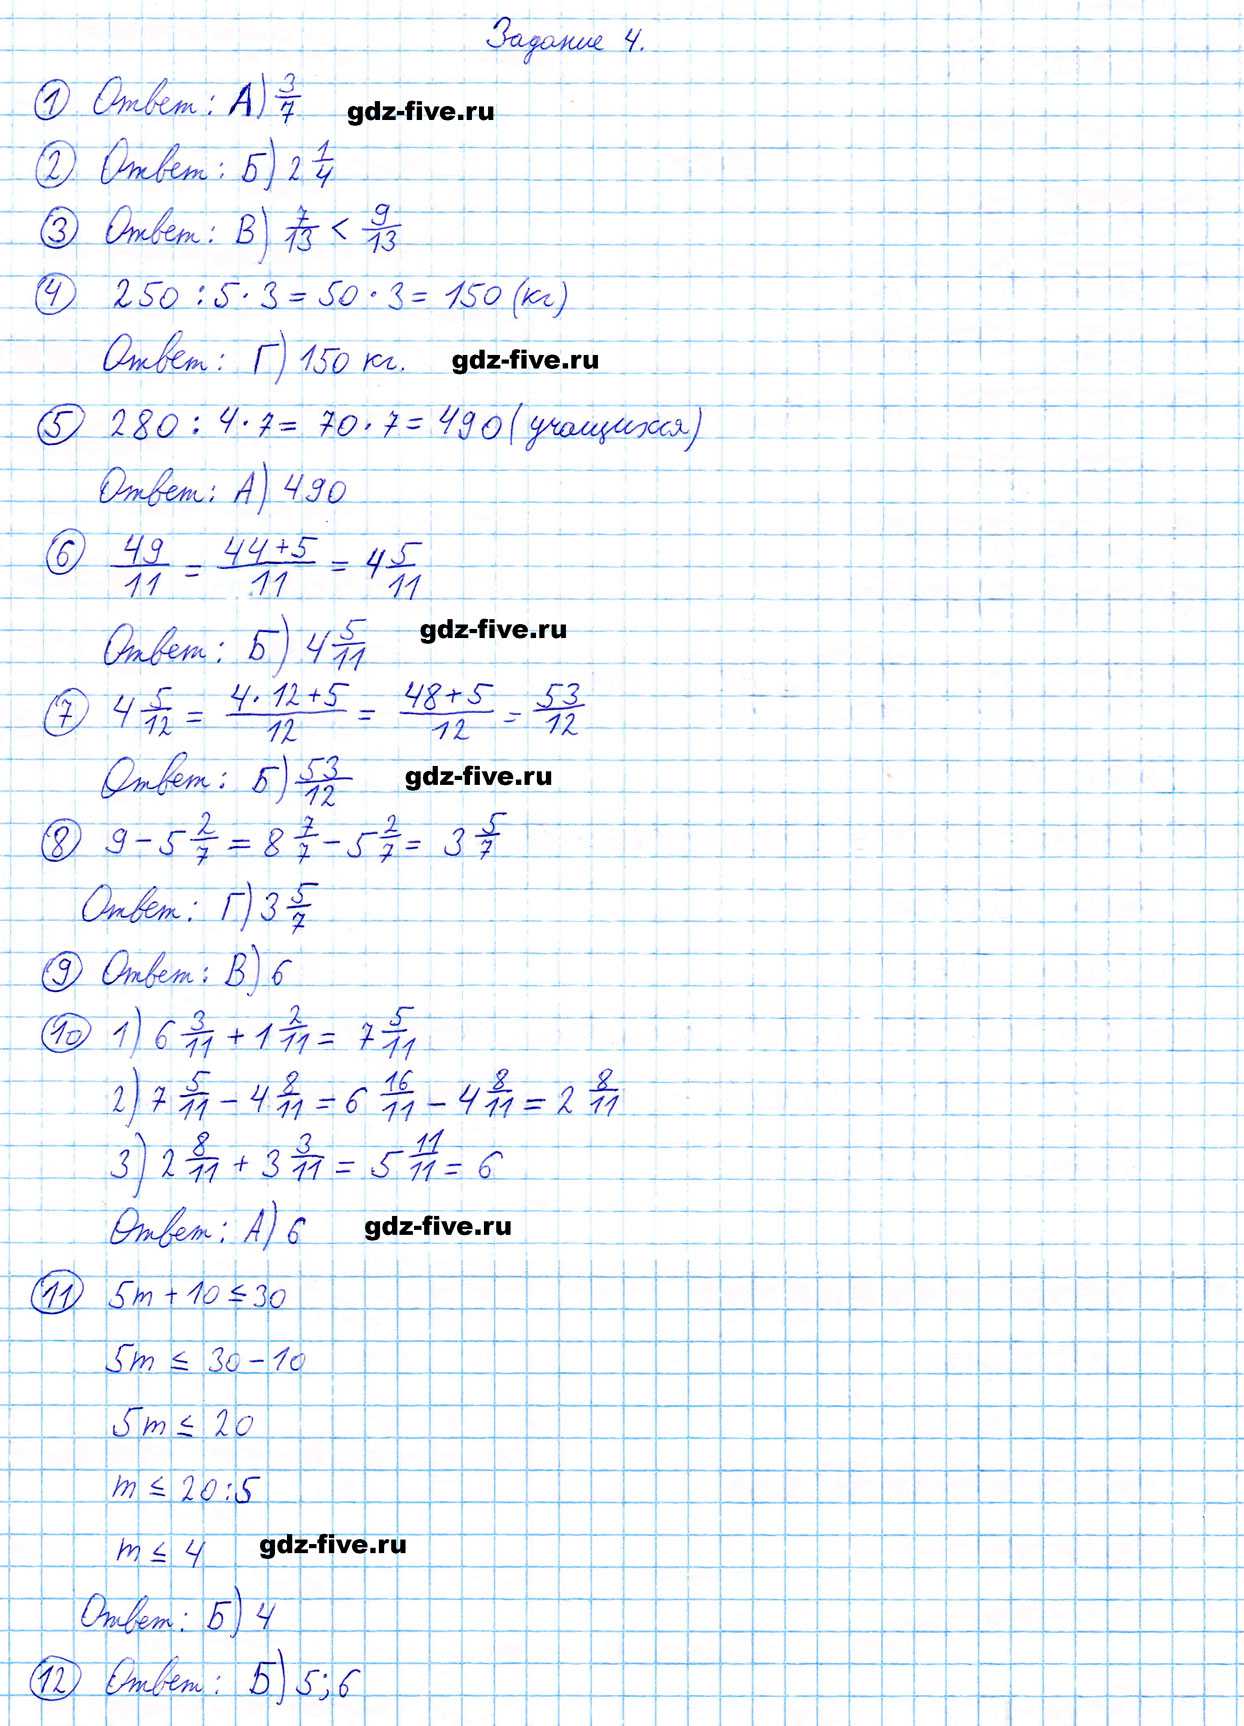 Задание 4.
① Ответ: А) 3/7 gdz-five.ru
② Ответ: Б) 2 1/4
③ Ответ: В) 7/13 < 9/13
④ 250 : 5 · 3 = 50 · 3 = 150 (кг)
Ответ: Г) 150 кг. gdz-five.ru
⑤ 280 : 4 · 7 = 70 · 7 = 490 (учащихся)
Ответ: А) 490
⑥ 49/11 = 44+5/11 = 4 5/11
Ответ: Б) 4 5/11 gdz-five.ru
⑦ 4 5/12 = 4·12+5/12 = 48+5/12 = 53/12
Ответ: Б) 53/12 gdz-five.ru
⑧ 9 - 5 2/7 = 8 7/7 - 5 2/7 = 3 5/7
Ответ: Г) 3 5/7
⑨ Ответ: В) 6
⑩ 1) 6 3/11 + 1 2/11 = 7 5/11
2) 7 5/11 - 4 8/11 = 6 16/11 - 4 8/11 = 2 8/11
3) 2 8/11 + 3 3/11 = 5 11/11 = 6
Ответ: А) 6 gdz-five.ru
⑪ 5m + 10 ≤ 30
5m ≤ 30 - 10
5m ≤ 20
m ≤ 20:5
m ≤ 4 gdz-five.ru
Ответ: Б) 4
⑫ Ответ: Б) 5; 6